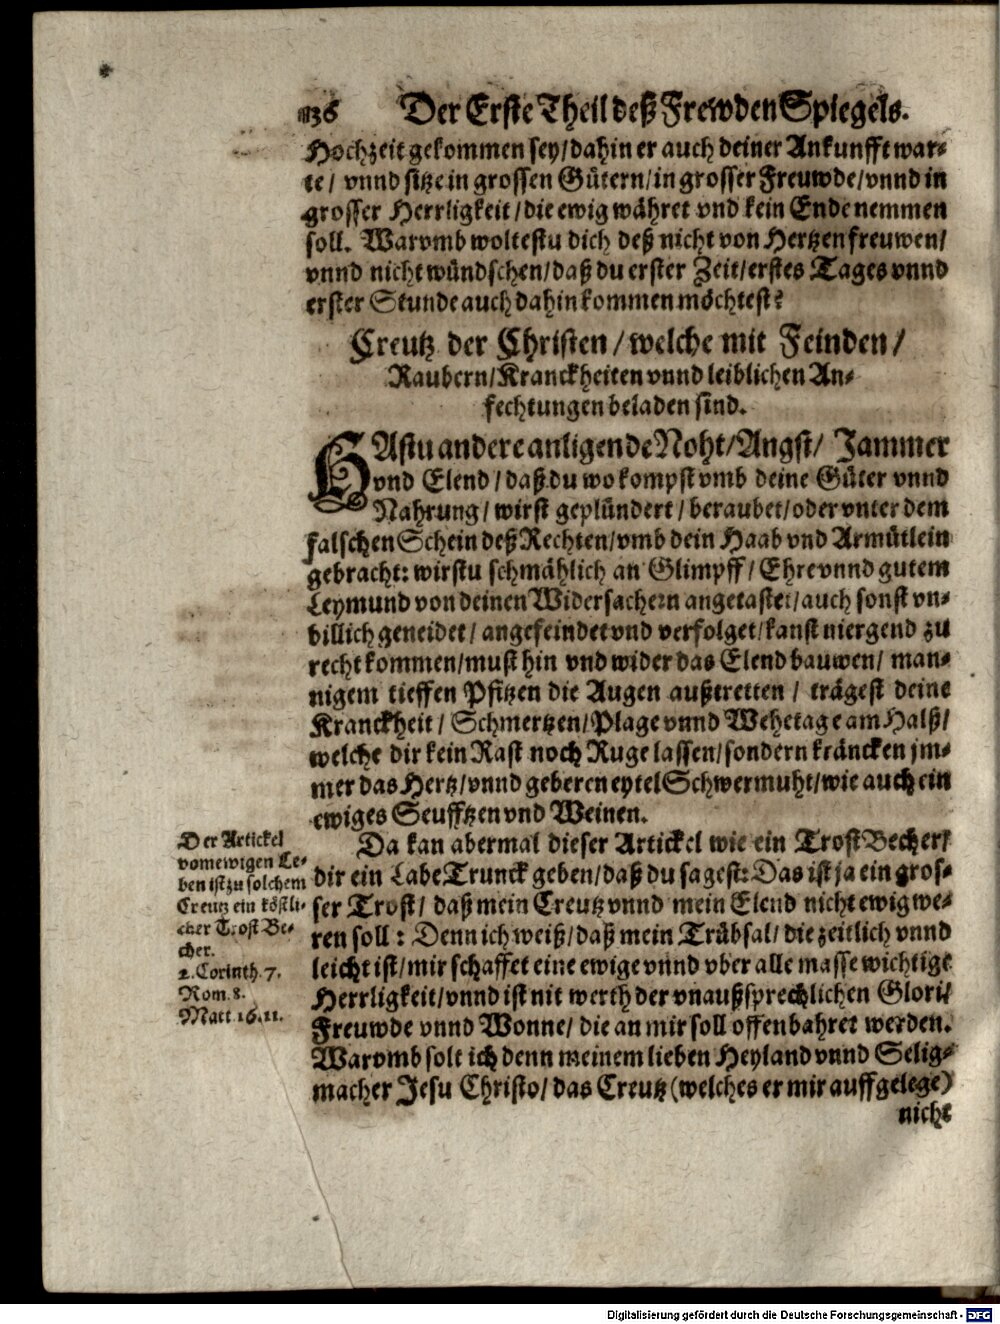 136 Der Erste Theil deß Frewden Spiegels.
Hochzeit gekommen sey/dahin er auch deiner Ankunfft war-
te/ vnnd sitze in grossen Gütern/in grosser Freuwde/vnnd in
grosser Herrligkeit/die ewig währet vnd kein Ende nemmen
soll. Warvmb woltestu dich deß nicht von Hertzen freuwen/
vnnd nicht wündschen/daß du erster Zeit/erstes Tages vnnd
erster Stunde auch dahin kommen möchtest?
Creutz der Christen/welche mit Feinden/
Raubern/Kranckheiten vnnd leiblichen An-
fechtungen beladen sind.
HAstu andere anligende Noht/Angst/ Jammer
vnd Elend/daß du wo kompst vmb deine Güter vnnd
Nahrung/wirst geplündert/beraubet/oder vnter dem
falschen Schein deß Rechten/vmb dein Haab vnd Armütlein
gebracht: wirstu schmählich an Glimpff/Ehre vnnd gutem
Leymund von deinen Widersachern angetastet/auch sonst vn-
billich geneidet/angefeindet vnd verfolget/kanst niergend zu
recht kommen/must hin vnd wider das Elend bauwen/man-
nigem tieffen Pfitzen die Augen außtretten/ trägest deine
Kranckheit/Schmertzen/Plage vnnd Wehetage am Halß/
welche dir kein Rast noch Ruge lassen/sondern kräncken jm-
mer das Hertz/vnnd geberen eytel Schwermuht/wie auch ein
ewiges Seufftzen vnd Weinen.
Da kan abermal dieser Artickel wie ein Trost Becher/
dir ein Labe Trunck geben/daß du sagest: Das ist ja ein gros-
ser Trost/ daß mein Creutz vnnd mein Elend nicht ewig we-
ren soll: Denn ich weiß/daß mein Trübsal/die zeitlich vnnd
leicht ist/mir schaffet eine ewige vnnd vber alle masse wichtige
Herrligkeit/vnnd ist nit werth der vnaußsprechlichen Glori/
Freuwde vnnd Wonne/die an mir soll offenbahret werden.
Warvmb solt ich denn meinem lieben Heyland vnnd Selig-
macher Jesu Christo/das Creutz (welches er mir auffgelege)
nicht
Der Artickel
vom ewigen Le-
ben ist zu solchem
Creutz ein köstli-
cher Trost Be-
cher.
2. Corinth. 7.
Rom. 8.
Matt 16.11.
Digitalisierung gefördert durch die Deutsche Forschungsgemeinschaft - DFG